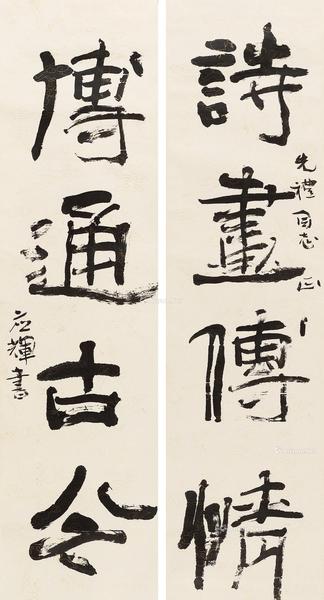 詩畫傳情
先禮同志正
博通古今
应輝書